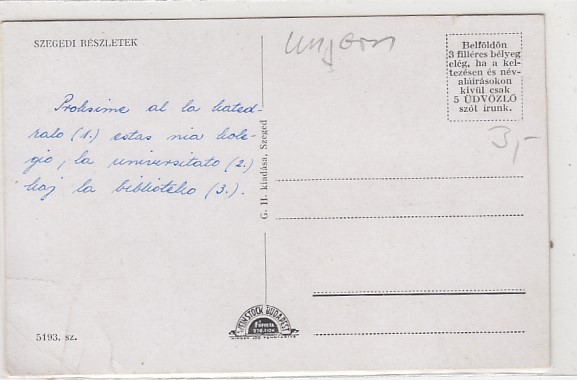 SZEGEDI RÉSZLETEK
Ungarn
Belföldön
3 filléres bélyeg
elég, ha a kel-
tezésen és név-
aláirásokon
kivül csak
5 ÜDVÖZLŐ
szót irunk.
3,-
Proksime al la kated-
ralo (1.) estas nia kole-
gio, la universitato (2.)
kaj la biblioteko (3.).
G. H. kiadása, Szeged
5193. sz.
BUDAPEST